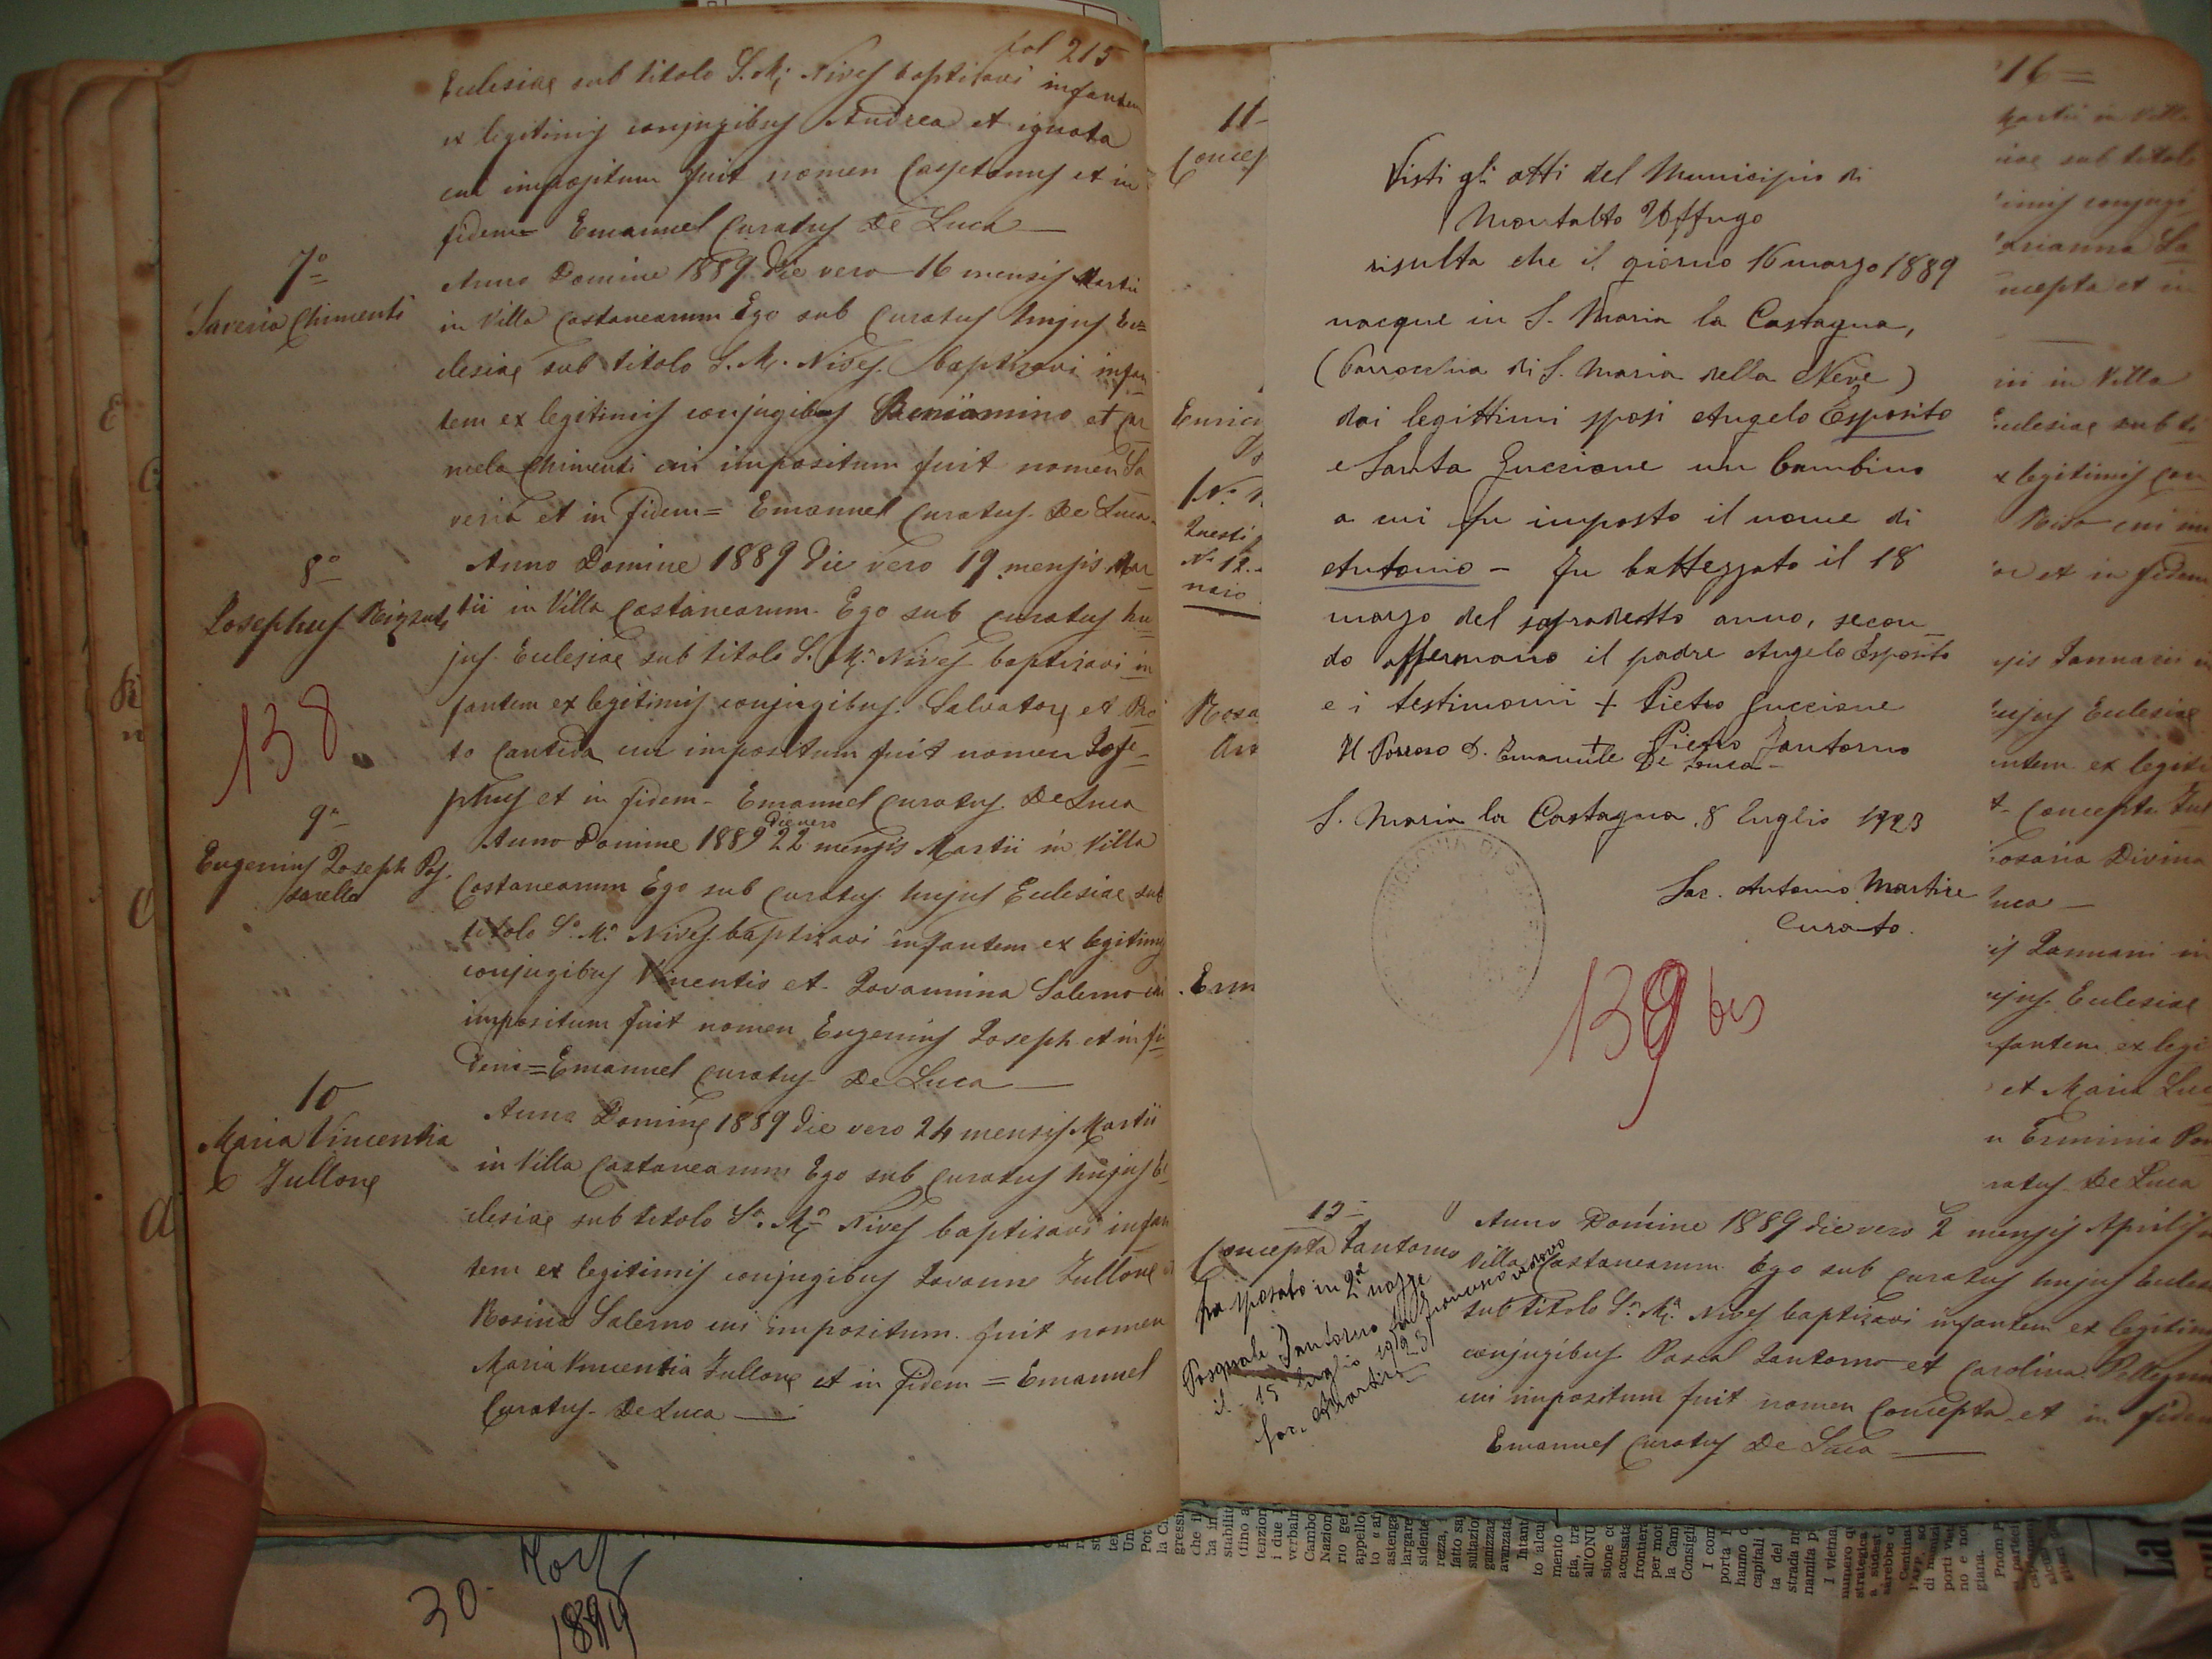 fol 215
Eclesiae sub titolo S. M. Nives baptisavi infantem
ex legitimis conjugibus Andrea et ignota
cui impositum fuit nomen Cajetanus et in
fidem = Emanuel Curatus De Luca
7°
Saveria Chimenti
Anno Domine 1889 die vero 16 mensis Martii
in Villa Castanearum Ego sub Curatus hujus Ec=
clesiae sub titolo S. M. Nives baptisavi infan
tem ex legitimis conjugibus Beniamino et Car
mela Chimenti cui impositum fuit nomen Sa
veria et in fidem = Emanuel Curatus De Luca
8°
Josephus
Anno Domine 1889 die vero 19 mensis Mar
tii in Villa Castanearum Ego sub Curatus hu=
jus Eclesiae sub titolo S. Ma. Nives baptisavi in
fantem ex legitimis conjugibus Salvatore et
to Cantida cui impositum fuit nomen Jose=
phus et in fidem - Emanuel Curatus De Luca
138
9°
Eugenius Joseph Pas.
sarella
Anno Domine 1889 die vero 22 mensis Martii in Villa
Castanearum Ego sub Curatus hujus Eclesiae sub
titolo Sa. Ma. Nives baptisavi infantem ex legitimis
conjugibus Vincentis et Jovannina Salerno cui
impositum fuit nomen Eugenius Joseph et in fi=
dem = Emanuel Curatus De Luca
10
Maria Vincentia
Fullone
Anno Domine 1889 die vero 24 mensis Martii
in Villa Castanearum Ego sub Curatus hujus Ec
clesiae sub titolo Sa. Ma. Nives baptisavi infan
tem ex legitimis conjugibus Jovanne Fullone et
Rosina Salerno cui impositum fuit nomen
Maria Vincentia Fullone et in fidem = Emanuel
Curatus De Luca
11-
Concep
Enric
No 12.
naio
Rosa
Erm
Visti gli atti del Municipio di
Montalto Uffugo
risulta che il giorno 16 marzo 1889
nacque in S. Maria la Castagna,
(Parrocchia di S. Maria della Neve)
dai legittimi sposi Angelo Esposito
e Santa Guccione un bambino
a cui fu imposto il nome di
Antonio - Fu battezzato il 18
marzo del sopradetto anno, secon_
do affermano il padre Angelo Esposito
e i testimoni + Pietro Guccione
+ Pietro Santorno
Il Parroco D. Emanuele De Luca
S. Maria la Castagna, 8 luglio 1923
Sac. Antonio Martire
Curato.
139 bis
16=
Martii in Villa
iae sub titolo
timis conjugi
arianna La
ncepta et in
iii in Villa
Eclesiae sub ti
x legitimis con
et in fidem
sis Januarii in
hujus Eclesiae
antem ex legiti
t Concepta
Rosaria Divina
Luca
is Januarii in
ujus Eclesiae
nfantem ex legi
et Maria Luc
n Erminia
ratus De Luca
12-
Concepta Santorno
ha sposato in 2a nozze
Pasquale Santorno fu Francesco vedovo
il 15 luglio 1923
Sac. Martire
Anno Domine 1889 die vero 2 mensis Aprilis in
Villa Castanearum Ego sub Curatus hujus Eclesi
sub titolo Sa. Ma. Nives baptisavi infantem ex legitim
conjugibus Pascal Santorno et Carolina Pellegrin
cui impositum fuit nomen Concepta et in fidem
Emanuel Curatus De Luca
30-